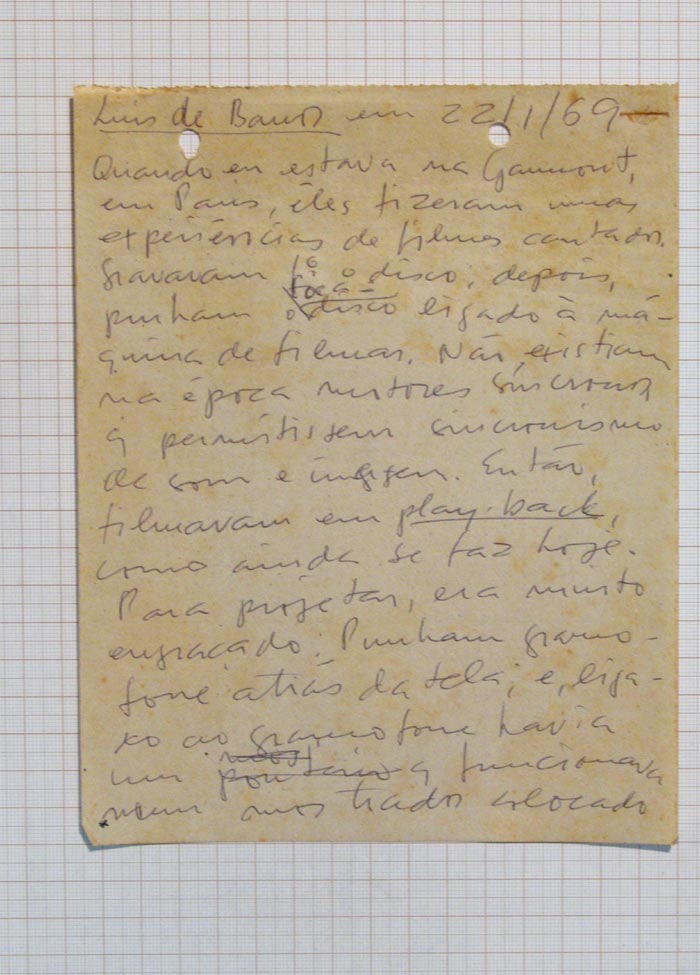 Luis de Barros em 22/1/69
Quando eu estava na Gaumont,
em Paris, êles fizeram umas
experiências de filmes cantados.
Gravavam 1º o disco; depois,
punham o disco ligado à má-
quina de filmar. Não existiam
na época motores síncronos
q permitissem sincronismo
de som e imagem. Então,
filmavam em play-back,
como ainda se faz hoje.
Para projetar, era muito
engraçado: Punham gramo-
fone atrás da tela; e, liga-
xo ao gramofone havia
um ponteiro q funcionava
num mostrador colocado